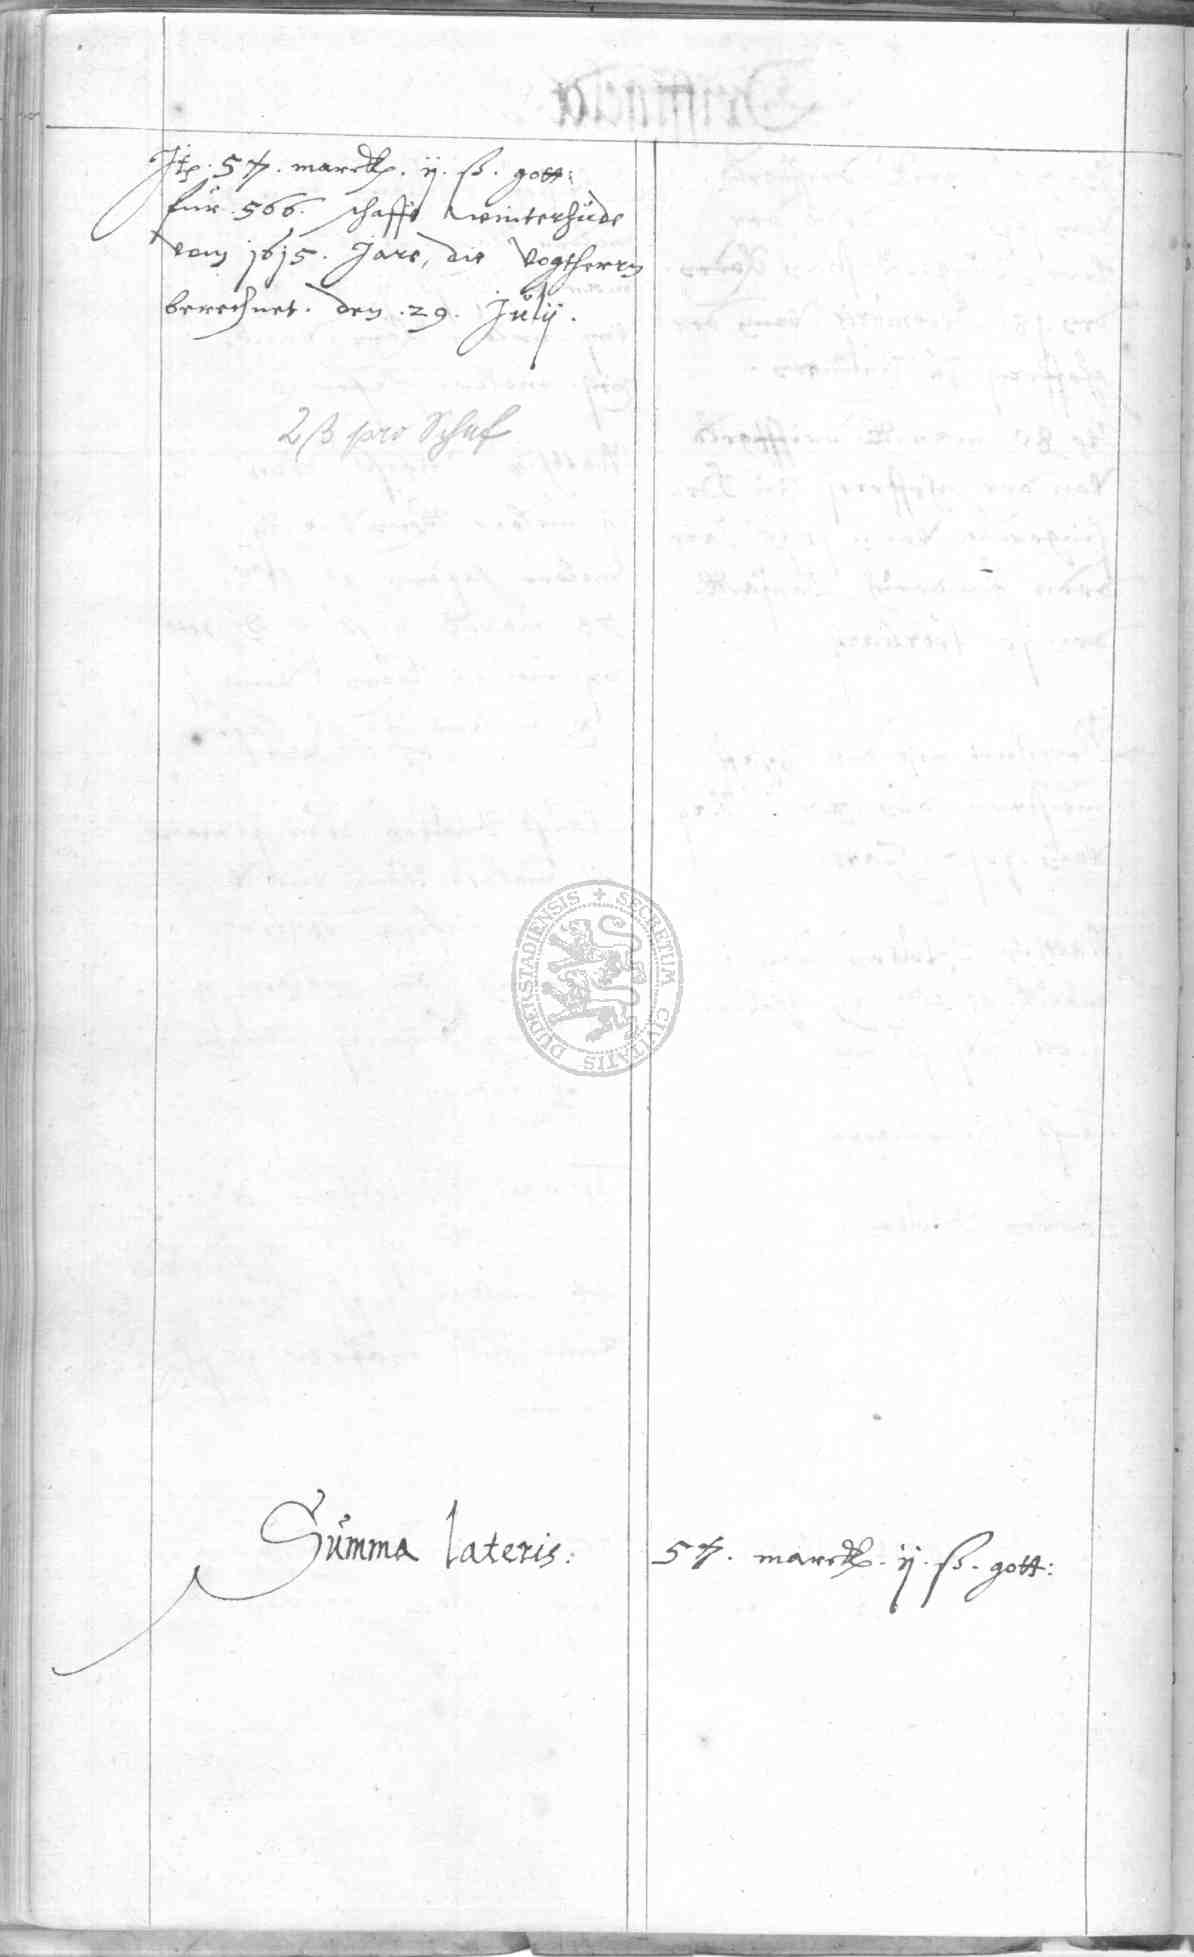 Itē. 54. marck. ij. ß. gott:
für. 566. schaffe winterhüde
vom 1615. Jare, die Vogtherrn
berechnet. den. 29. Julij.
2 ß pro Schaf
DUDERSTADIENSIS + SECRETUM CIVITATIS
Summa lateris: 54. marck. ij. ß. gott: